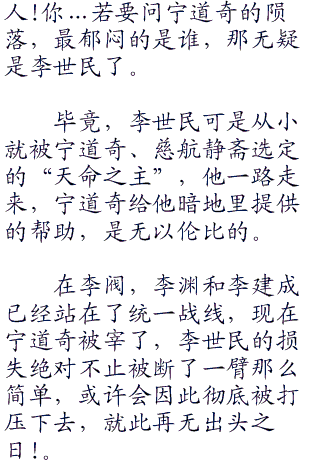 人!你…若要问宁道奇的陨
落，最郁闷的是谁，那无疑
是李世民了。
毕竟，李世民可是从小
就被宁道奇、慈航静斋选定
的“天命之主”，他一路走
来，宁道奇给他暗地里提供
的帮助，是无以伦比的。
在李阀，李渊和李建成
已经站在了统一战线，现在
宁道奇被宰了，李世民的损
失绝对不止被断了一臂那么
简单，或许会因此彻底被打
压下去，就此再无出头之
日!。